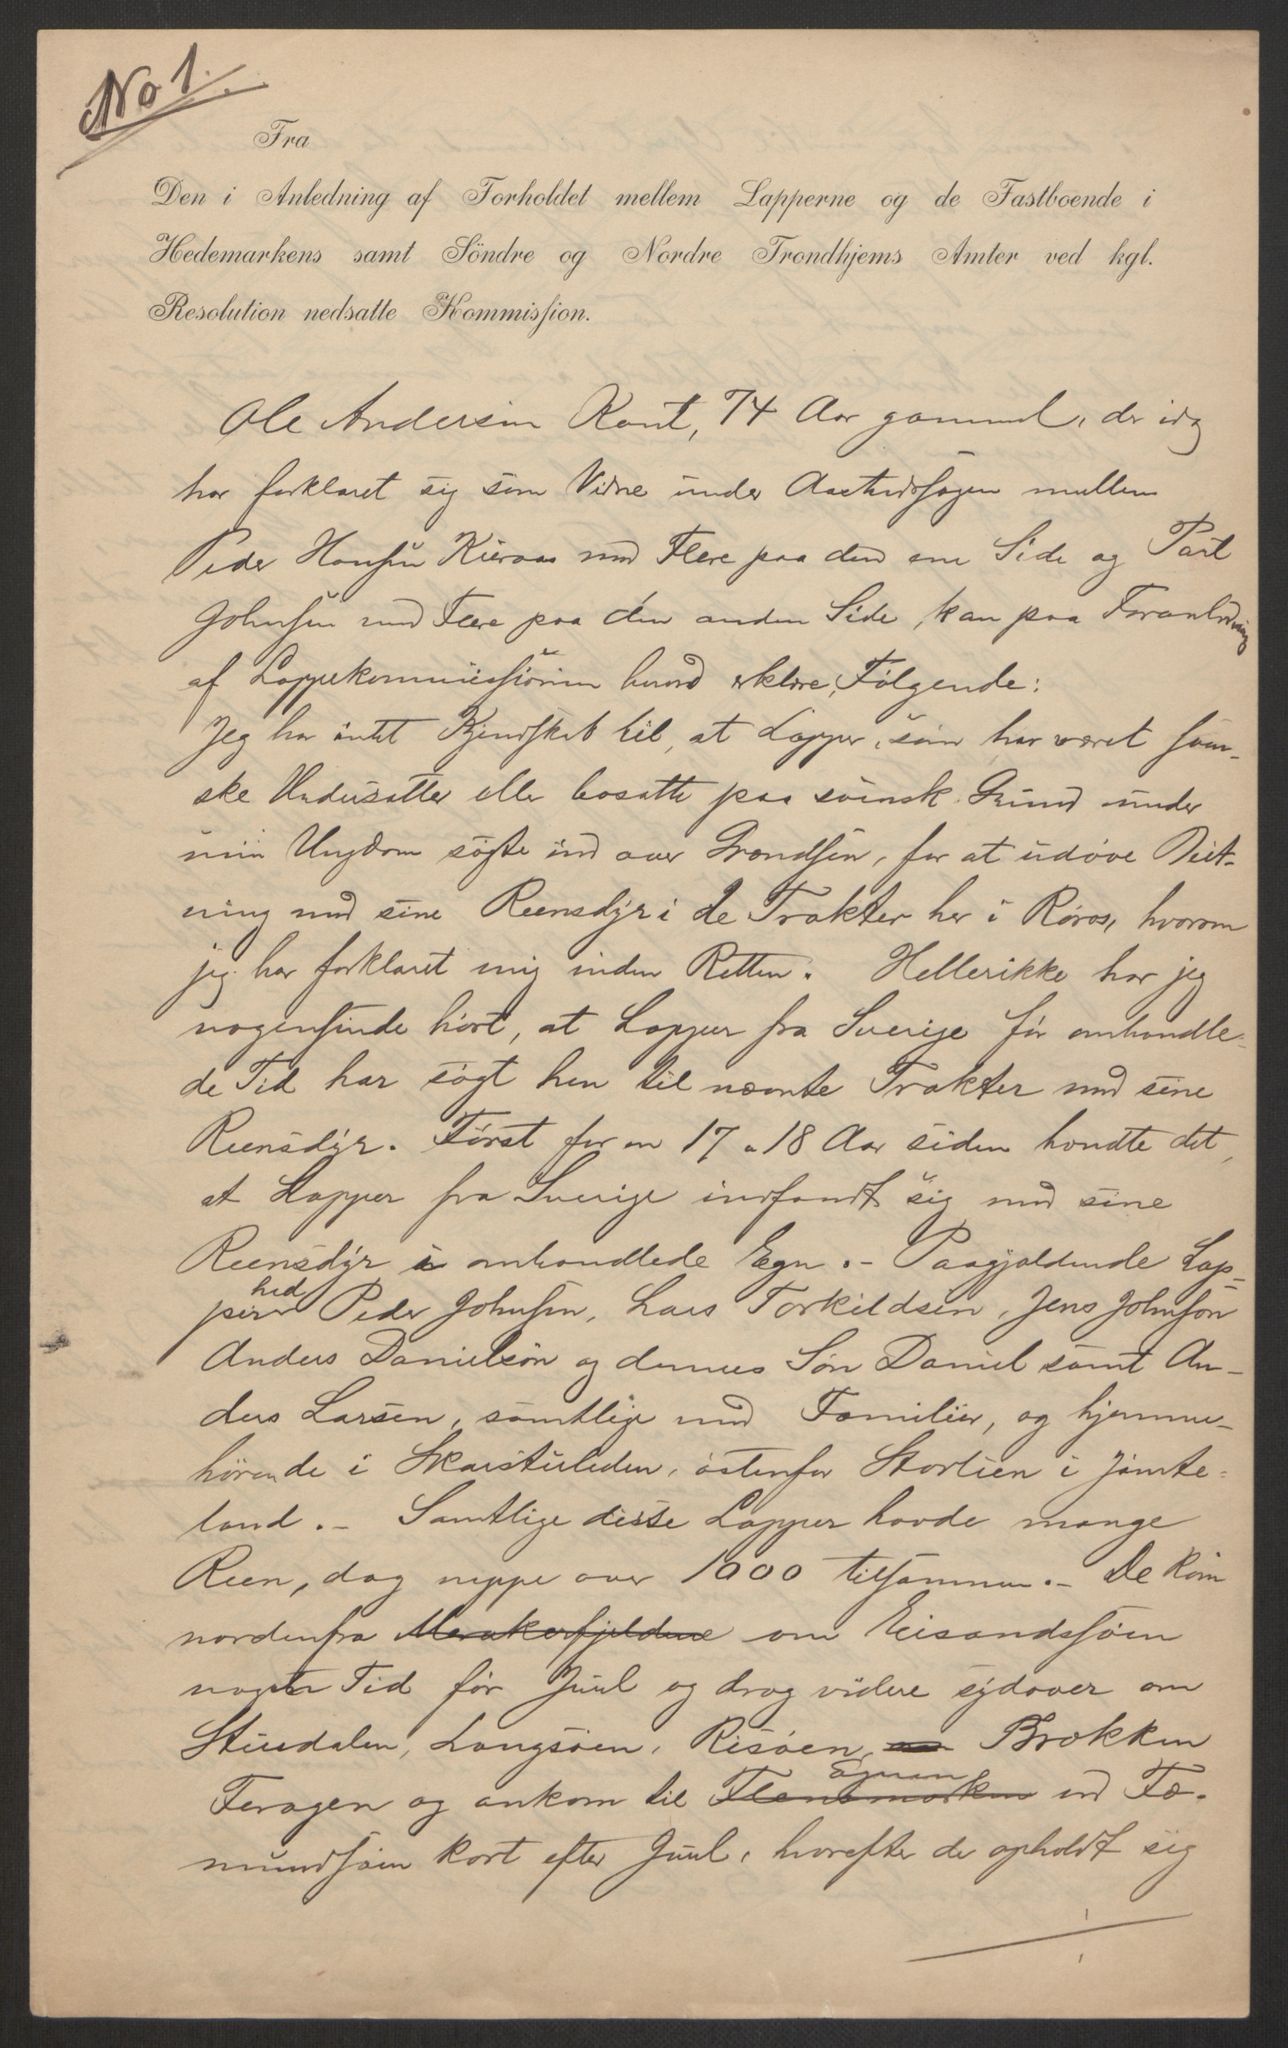 No 1.
Fra
Den i Anledning af Forholdet mellem Lapperne og de Fastboende i
Hedemarkens samt Söndre og Nordre Trondhjems Amter ved kgl.
Resolution nedsatte Kommission.
Ole Andersen Kant, 74 Aar gammel, der idag
har forklaret sig som Vidne under Aastedssagen mellem
Peder Hansen Kieraas med Flere paa den ene Side og Paul
Johnsen med Flere paa den anden Side, kan paa Foranledning
af Lappekommissionen herved erklære Følgende:
Jeg har intet Kjendskab til, at Lapper, som har været sven-
ske Undersatter eller bosatte paa svensk Grund under
min Ungdom søgte ind over Grændsen, for at udøve Beit-
ning med sine Reensdyr i de Trakter her i Røros, hvorom
jeg har forklaret mig inden Retten. Heller ikke har jeg
nogensinde hørt, at Lapper fra Sverige før omhandle-
de Tid har søgt hen til nævnte Trakter med sine
Reensdyr. Først for en 17 a 18 Aar siden hændte det,
at Lapper fra Sverige indfandt sig med sine
Reensdyr i omhandlede Egn. - Paagjældende Lap-
per hed Peder Johnsen, Lars Torkildsen, Jens Johnsøn
Anders Danielsøn og dennes Søn Daniel samt An-
ders Larsen, samtlige med Familier, og hjemme-
hørende i Skarsturleden, østenfor Storlien i Jämte-
land. - Samtlige disse Lapper havde mange
Reen, dog neppe over 1000 tilsammen. - De kom
nordenfra Merakerfjeldene om Eisandssjøen
nogen Tid før Juul og drog videre sydover om
Stuedalen, Langsøen, Risøen, Brækken
Feragen og ankom til Flensmarken ved Fæ-
mundsøen kort efter Juul, hvorefter de opholdt sig